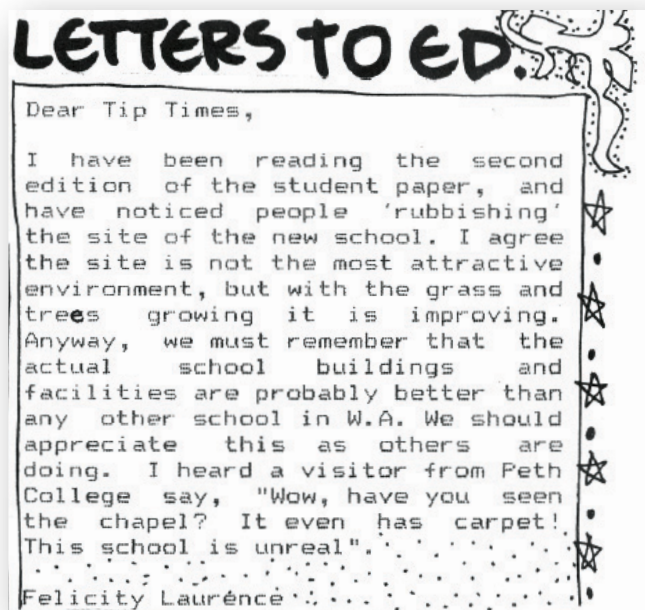 LETTERS TO ED.
Dear Tip Times,
I have been reading the second
edition of the student paper, and
have noticed people 'rubbishing'
the site of the new school. I agree
the site is not the most attractive
environment, but with the grass and
trees growing it is improving.
Anyway, we must remember that the
actual school buildings and
facilities are probably better than
any other school in W.A. We should
appreciate this as others are
doing. I heard a visitor from Peth
College say, "Wow, have you seen
the chapel? It even has carpet!
This school is unreal".
Felicity Laurence